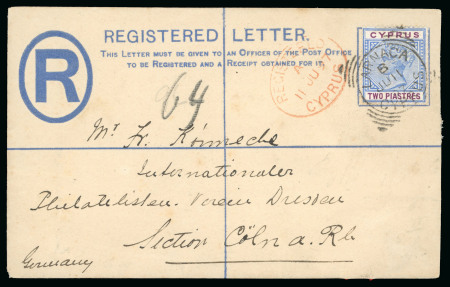 REGISTERED LETTER.
THIS LETTER MUST BE GIVEN TO AN OFFICER OF THE POST OFFICE
TO BE REGISTERED AND A RECEIPT OBTAINED FOR IT.
R
CYPRUS
TWO PIASTRES
LARNACA
CYPRUS
64
Mr Fr. Könnecke
Internationaler
Philatelisten-Verein Dresden
Section Cöln a. Rh
Germany